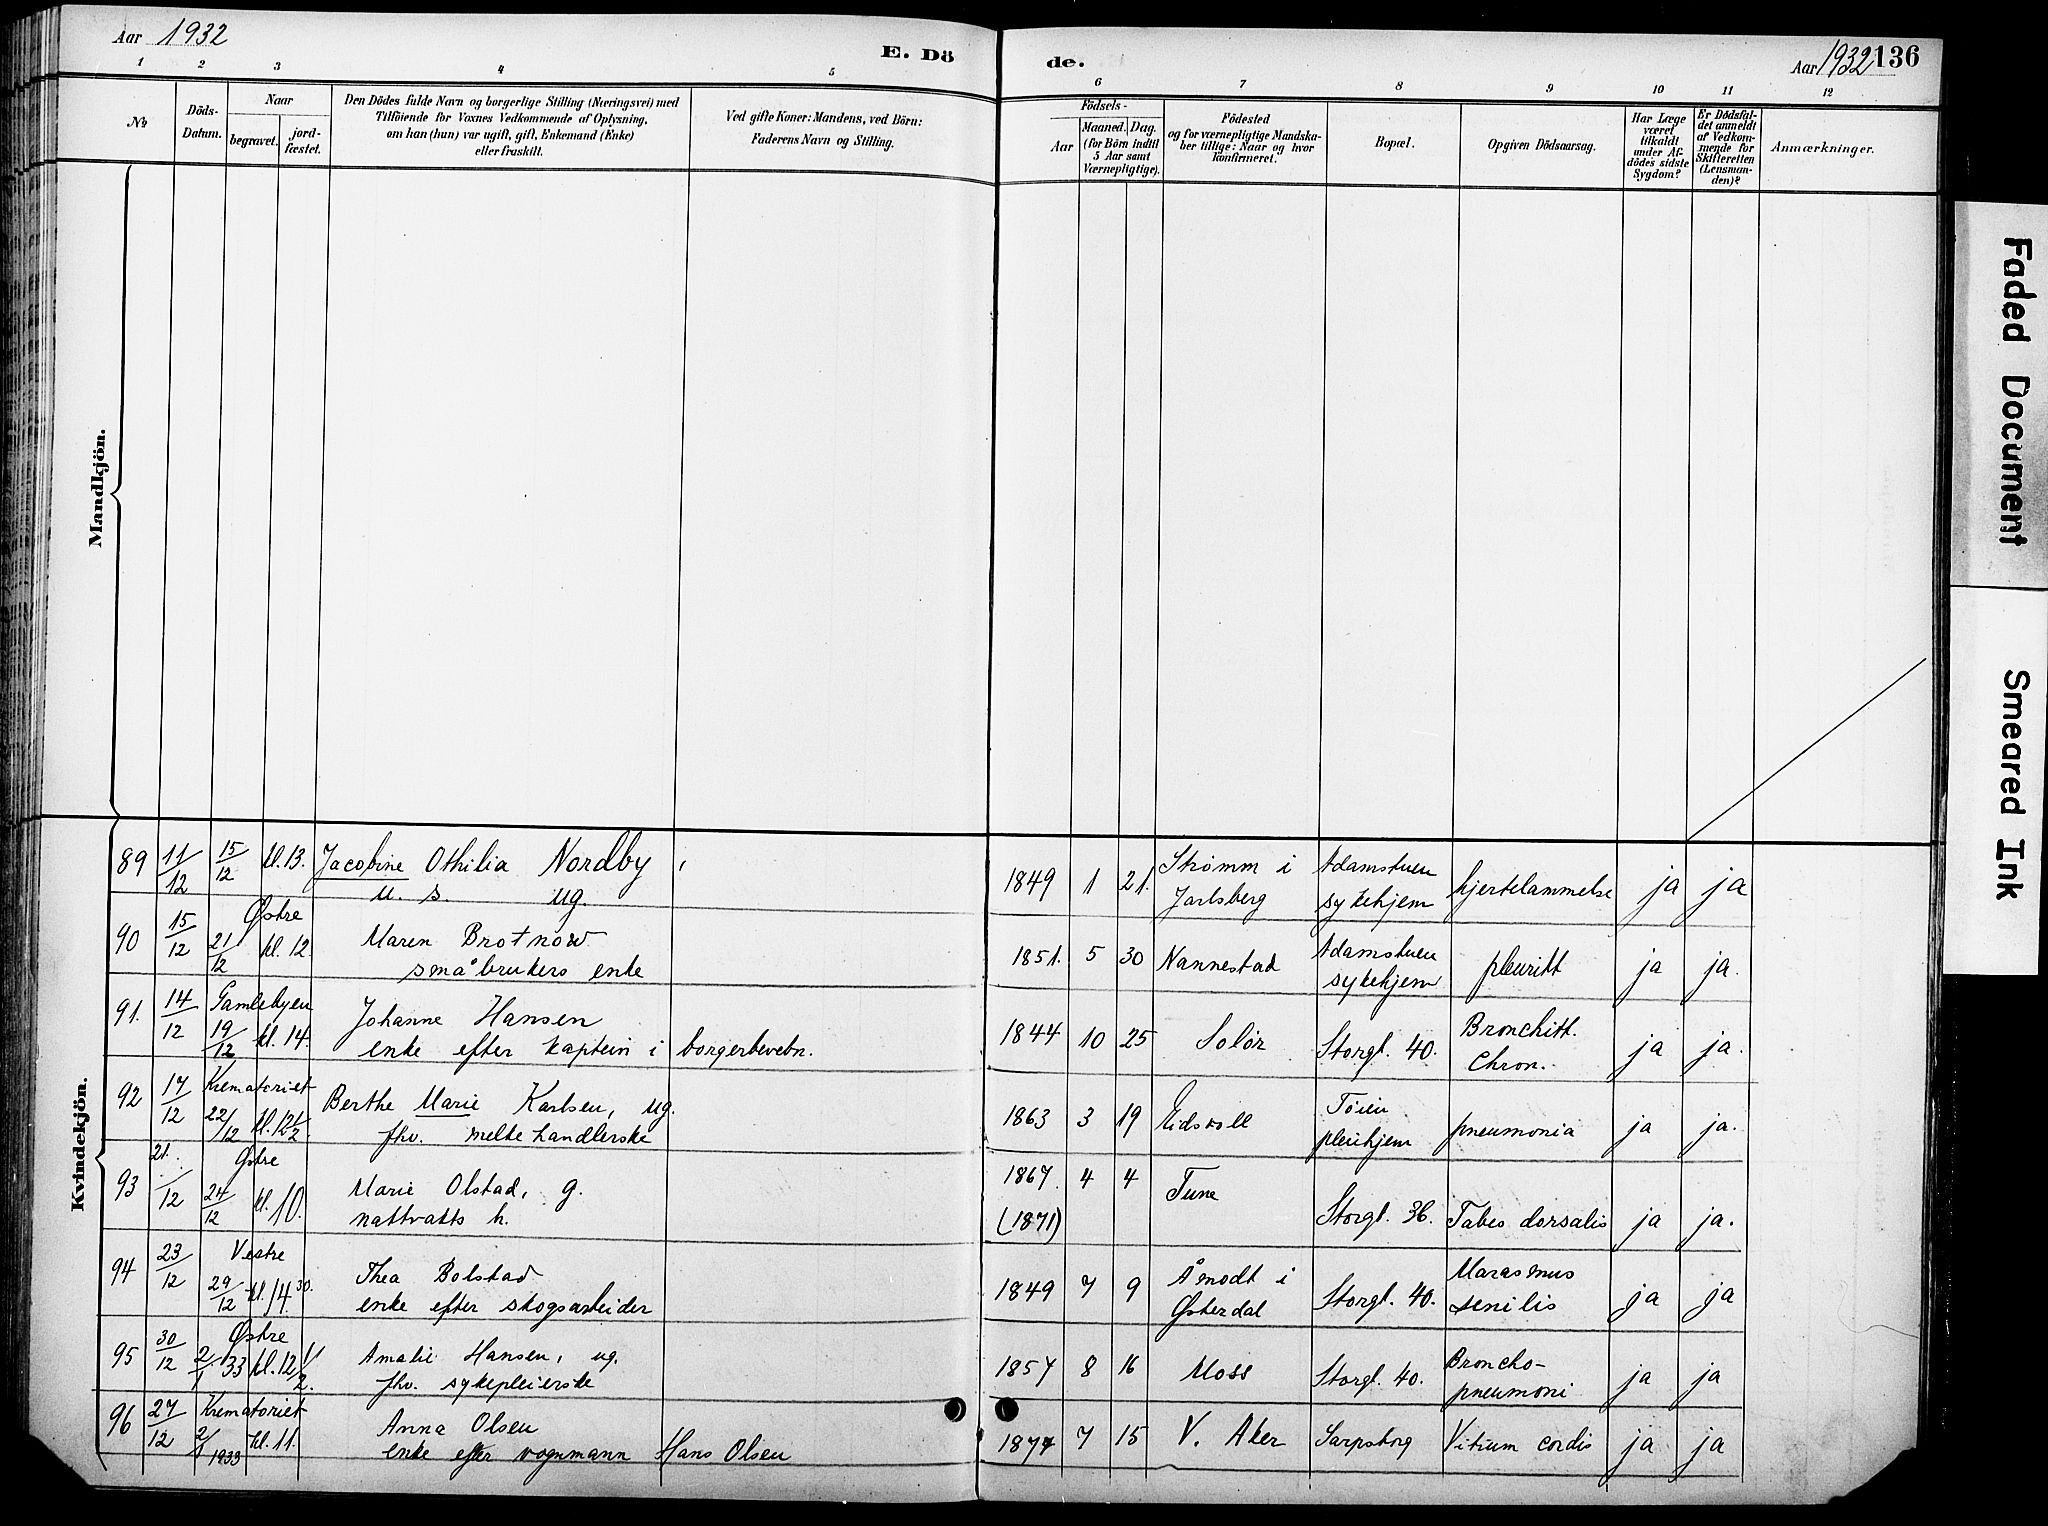 Aar 1932
E. Dö
de.
Aar 1932 136
1 2 3 4 5 6 7 8 9 10 11 12
№
Döds-
Datum.
Naar
begravet.
jord-
fæstet.
Den Dödes fulde Navn og borgerlige Stilling (Næringsvei) med
Tilföiende for Voxnes Vedkommende af Oplysning,
om han (hun) var ugift, gift, Enkemand (Enke)
eller fraskilt.
Ved gifte Koner: Mandens, ved Börn:
Faderens Navn og Stilling.
Födsels-
Aar
Maaned. Dag.
(for Börn indtil
5 Aar samt
Værnepligtige).
Födested
og for værnepligtige Mandska-
ber tillige: Naar og hvor
konfirmeret.
Bopæl.
Opgiven Dödsaarsag.
Har Læge
været
tilkaldt
under Af-
dödes sidste
Sygdom?
Er Dödsfal-
det anmeldt
af Vedkom-
mende for
Skifteretten
(Lensman-
den)?
Anmærkninger.
Mandkjön.
Kvindekjön.
89 11/12 15/12 kl. 13. Jacobine Othilia Nordby
u. s. ug.
1849 1 21. Strømm i
Jarlsberg
Adamstuen
sykehjem
hjertelammelse ja ja
90 15/12 Østre
21/12 kl. 12. Maren Brotnow
småbrukers enke
1851. 5 30 Nannestad
Adamstuen
sykehjem
pleuritt ja ja.
91. 14/12 Gamlebyen
19/12 kl. 14. Johanne Hansen
enke efter kaptein i borgerbevebn.
1844 10 25 Solør Storgt. 40.
Bronchitt.
Chron.
ja ja.
92 17/12 Krematoriet
22/12 kl. 12 1/2. Berthe Marie Karlsen, ug.
fhv. melkehandlerske
1863 3 19 Eidsvoll
Tøien
pleiehjem
pneumonia ja ja.
93 21./12 Østre
24/12 kl. 10. Marie Olstad, g.
nattvatts h.
1867. 4 4 Tune
(1871)
Storgt. 36. Tabes dorsalis ja ja.
94 23/12 Vestre
29/12 kl. 14 30. Thea Bolstad
enke efter skogsarbeider
1849 7 9 Åmodt i
Østerdal
Storgt. 40. Marasmus
senilis
ja ja
95 30/12 Østre
2/1 33 kl. 12 1/2. Amalie Hansen, ug.
fhv. sykepleierske
1857 8 16 Moss Storgt. 40.
Broncho-
pneumoni
ja ja
96 27/12 Krematoriet
2/1 1933 kl. 11. Anna Olsen
enke efter vognmann Hans Olsen
1877 7 15 V. Aker Sarpsborg Vitium cordis ja ja
Faded Document
Smeared Ink